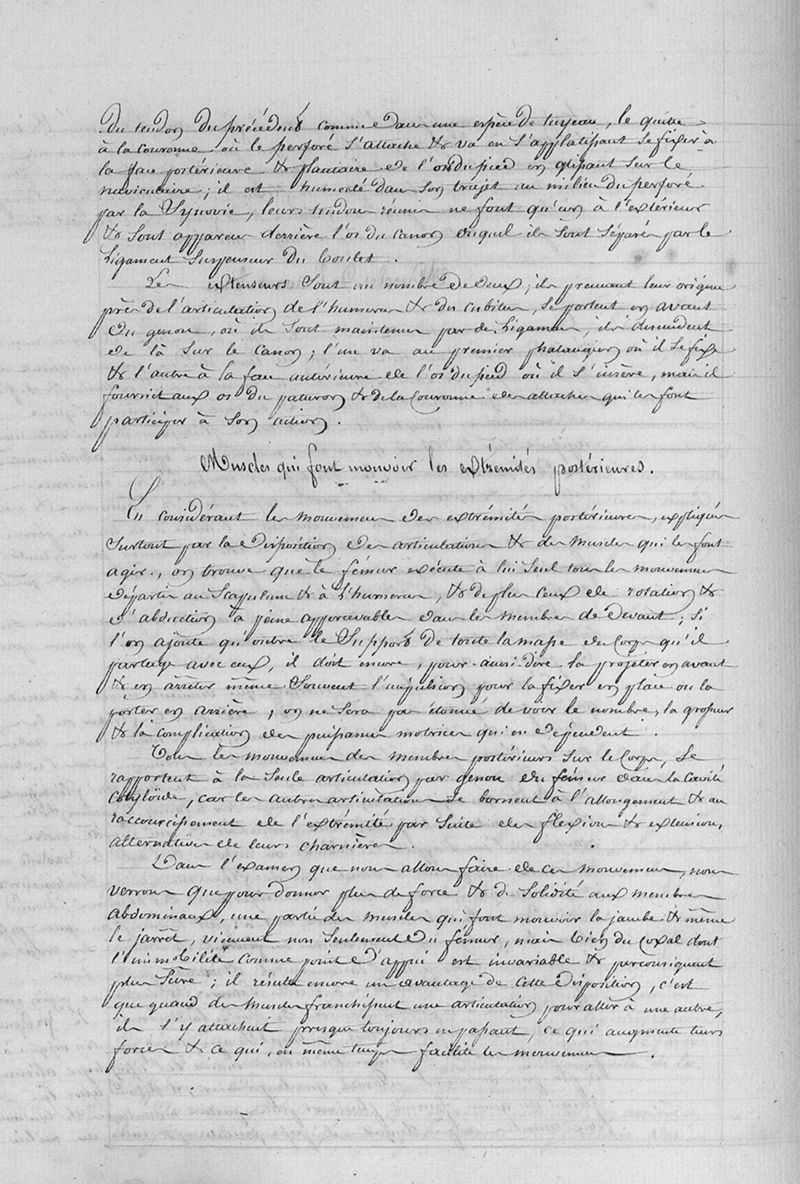 du tendon du précédent comme dans une espèce de tuyeau, le quitte
à la couronne où le perforé s'attache & va en s'applatissant se fixer à
la face postérieure & plantaire de l'os du pied en glissant sur le
naviculaire ; il est humecté dans son trajet au milieu du perforé
par la Synovie, leurs tendons réunis ne font qu'un à l'extérieur
& sont apparens derrière l'os du canon duquel ils sont séparés par le
Ligament Suspenseur du boulet.
Les extenseurs sont au nombre de deux ; ils prennent leur origine
près de l'articulation de l'humerus & du cubitus, se portent en avant
du genou, où ils sont maintenus par des Ligamens, ils descendent
de là sur le canon ; l'un va au premier phalangien où il se fixe
& l'autre à la face antérieure de l'os du pied où il s'insère, mais il
fournit aux os du paturon & de la couronne des attaches qui les font
participer à son action.
Muscles qui font mouvoir les extrémités postérieures.
En considérant les mouvemens des extrémités postérieures, expliqués
surtout par la disposition des articulations & des muscles qui les font
agir, on trouve que le fémur exécute à lui seul tous les mouvemens
départis au Scapulum & à l'humerus, & de plus ceux de rotation &
d'abduction à peine appercevables dans les membres de devant ; si
l'on ajoute qu'outre le Support de toute la masse du corps qu'il
partage avec eux, il doit encore, pour-ainsi-dire la projeter en avant
& en arrêter même souvent l'impulsion pour la fixer en place ou la
porter en arrière, on ne sera pas étonné de voir le nombre, la grosseur
& la complication des puissances motrices qui en dépendent.
Tous les mouvemens des membres postérieurs sur le corps, se
rapportent à la seule articulation par genou du fémur dans la cavité
cotyloïde, car les autres articulations se bornent à l'allongement & au
raccourcissement de l'extrémité par suite des flexions & extensions,
alternatives de leurs charnières.
Dans l'examen que nous allons faire de ces mouvemens, nous
verrons que pour donner plus de force & de solidité aux membres
abdominaux, une partie des muscles qui font mouvoir la jambe & même
le jarret, viennent non seulement du fémur, mais bien du Coxal dont
l'immobilité comme point d'appui est invariable & par conséquent
plus sûre ; il résulte encore un avantage de cette disposition, c'est
que quand des muscles franchissent une articulation pour aller à une autre,
ils s'y attachent presque toujours en passant, ce qui augmente leurs
forces & ce qui, en même temps facilite les mouvemens.